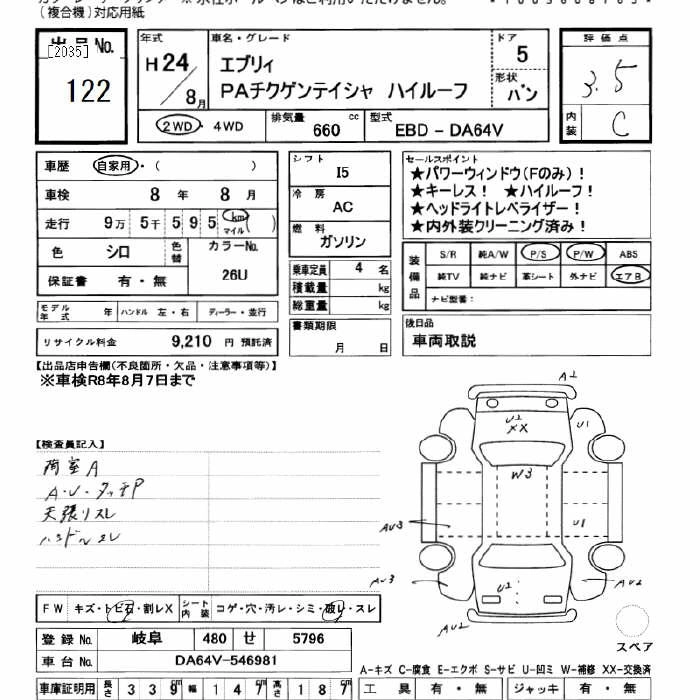 (複合機)対応用紙
出品No.
[2035]
122
年式
H24/8月
車名・グレード
エブリィ
PAチクゲンテイシャ ハイルーフ
ドア
5
形状
バン
評価点
3.5
内装
C
2WD・4WD
排気量
660 cc
型式
EBD-DA64V
車歴 自家用・( )
車検 8年 8月
走行 9万5千595 km マイル ( )
色 シロ
色替
カラーNo.
26U
保証書 有・無
シフト
I5
冷房
AC
燃料
ガソリン
乗車定員 4 名
積載量 kg
総重量 kg
セールスポイント
★パワーウィンドウ(Fのみ)!
★キーレス! ★ハイルーフ!
★ヘッドライトレベライザー!
★内外装クリーニング済み!
装備品
S/R 純A/W P/S P/W ABS
純TV 純ナビ 革シート 外ナビ エアB
ナビ型番:
モデル年式 年 ハンドル 左・右 ディーラー・並行
リサイクル料金 9,210 円 預託済
書類期限
月 日
後日品
車両取説
【出品店申告欄(不良箇所・欠品・注意事項等)】
※車検R8年8月7日まで
【検査員記入】
荷室A
A・U・タッチP
天張リスレ
ハンドルスレ
A1
U2
XX
U1
W3
AU3
U1
AU3
U2
AU2
AU2
スペア
FW キズ・トビ石・割レX
シート内装 コゲ・穴・汚レ・シミ・破レ・スレ
登録No. 岐阜 480 せ 5796
車台No. DA64V-546981
A-キズ C-腐食 E-エクボ S-サビ U-凹ミ W-補修 XX-交換済
車庫証明用 長さ 339cm 幅 147cm 高さ 187cm
工具 有・無 ジャッキ 有・無